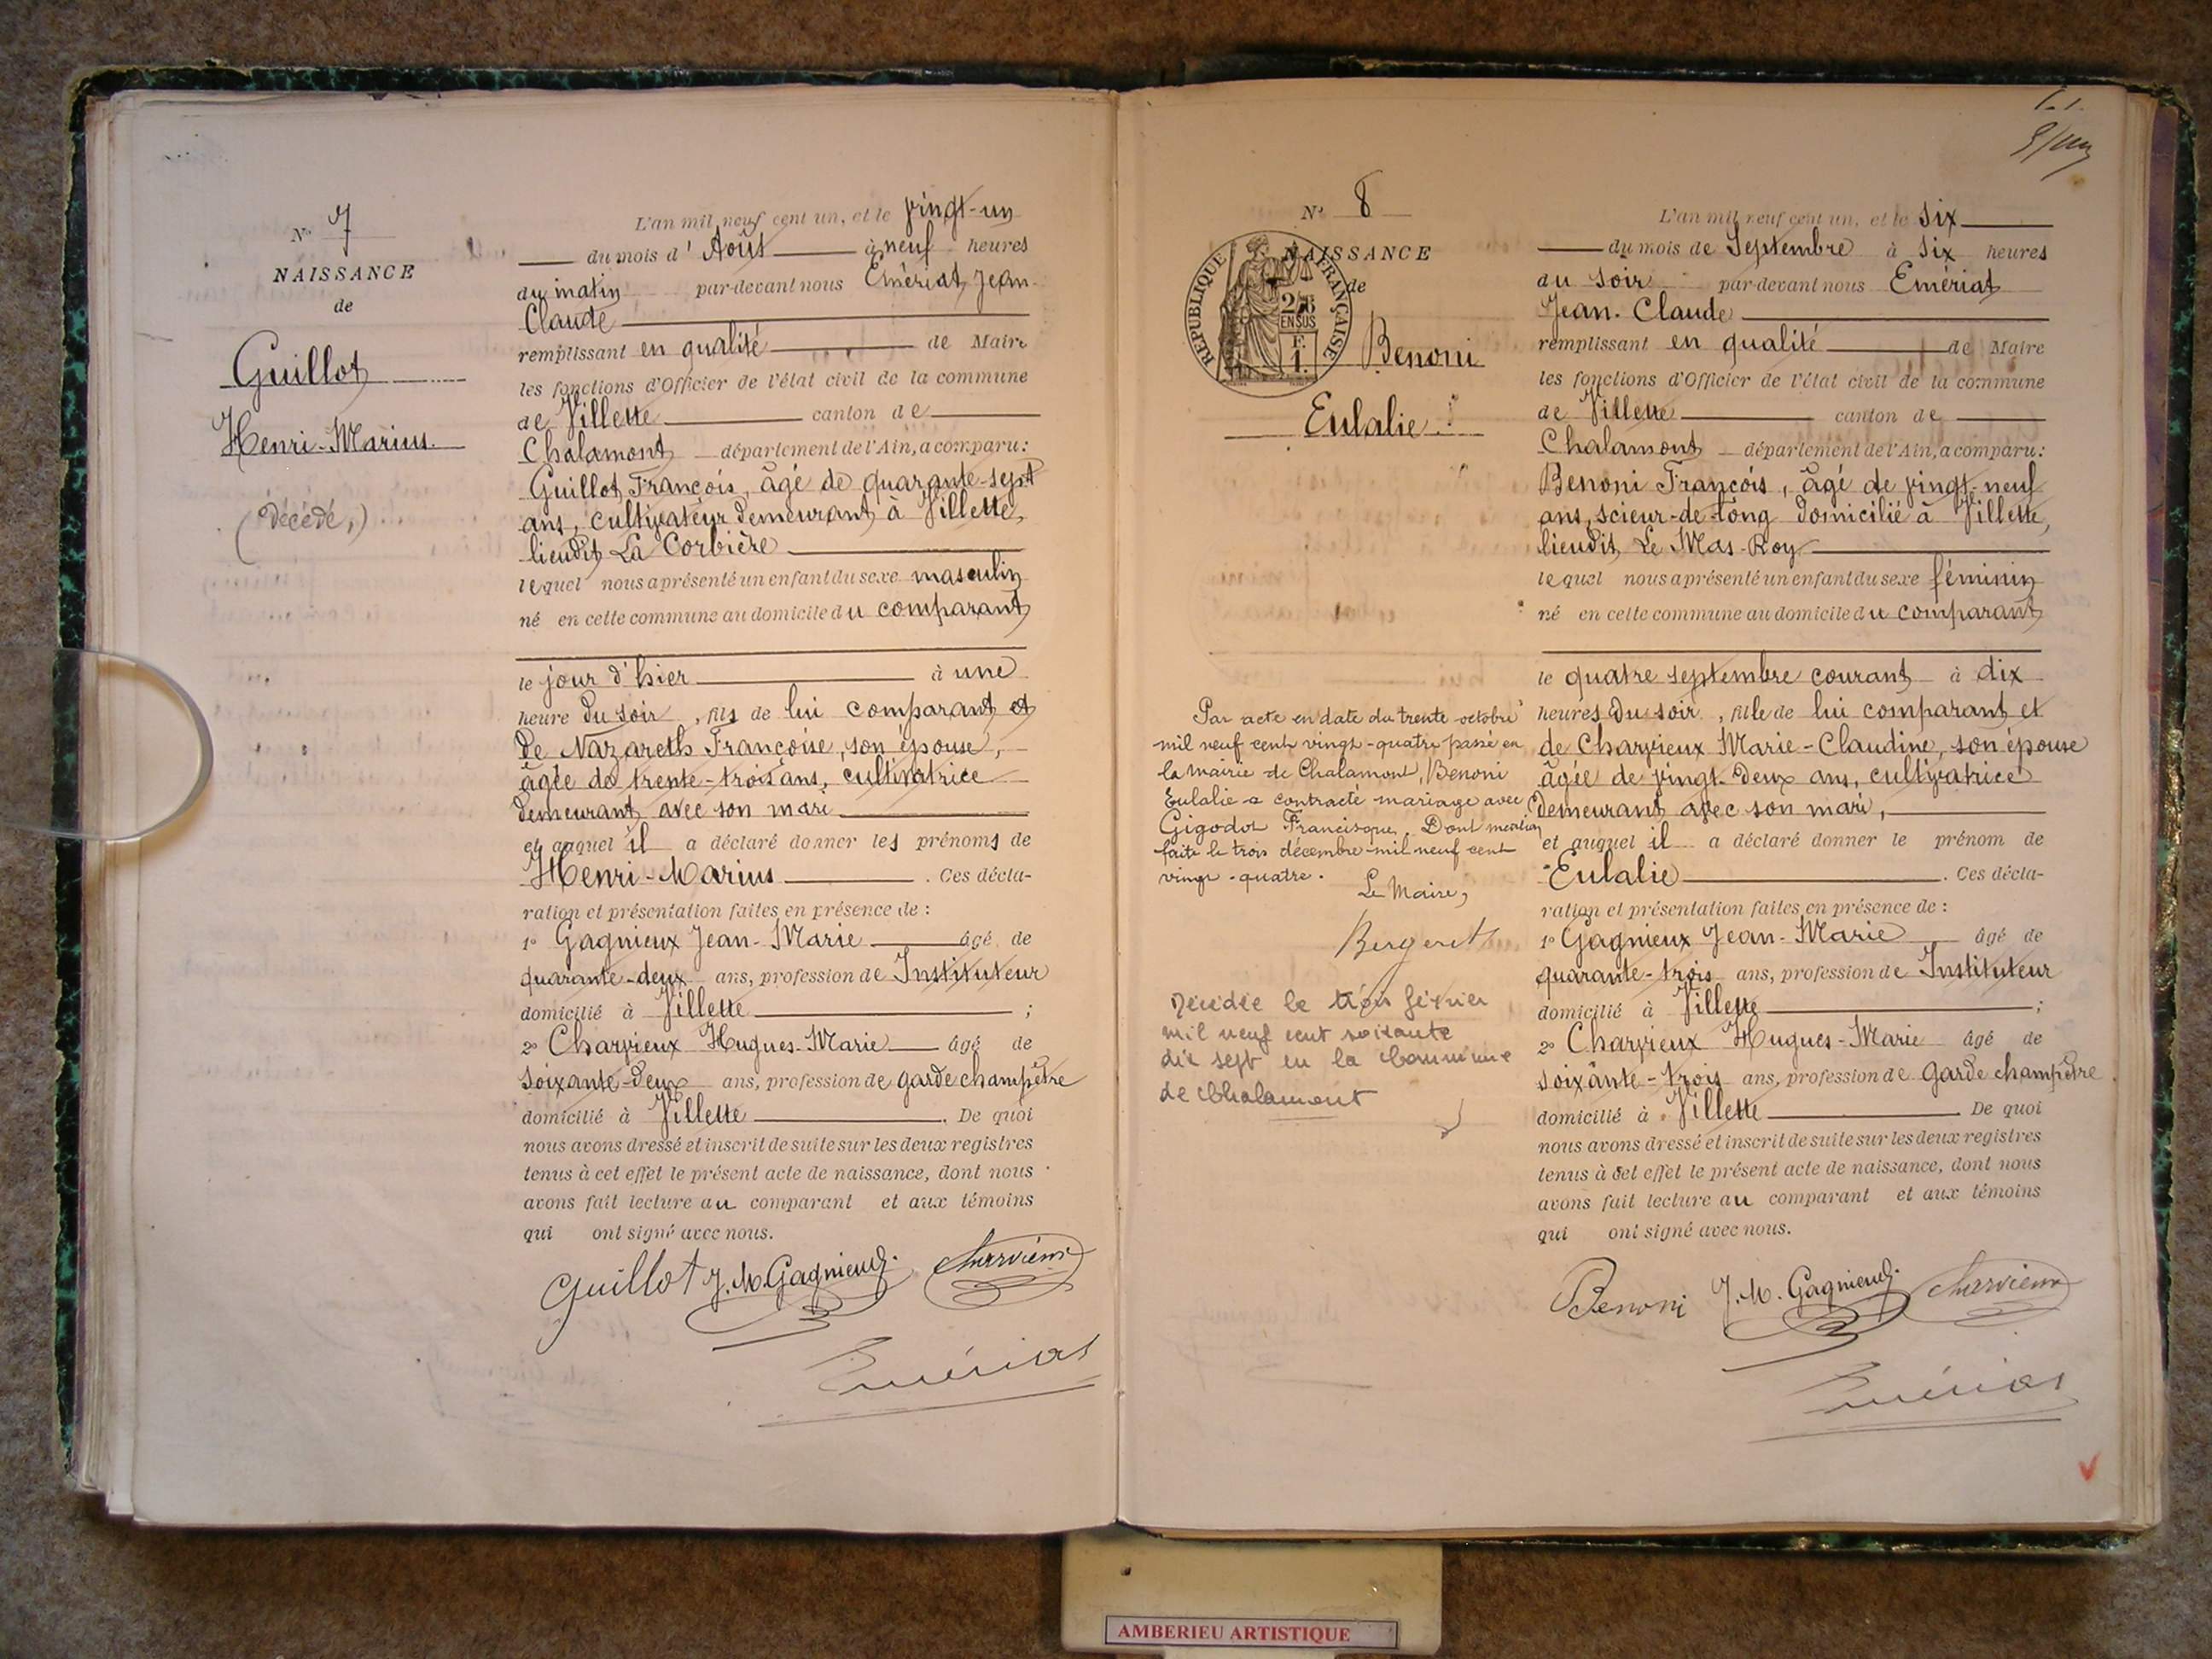 N° 7
NAISSANCE
de
Guillot
Henri-Marius
(Décédé,)
L'an mil neuf cent un, et le vingt-un
du mois d'Août à neuf heures
du matin par-devant nous Emériat Jean-
Claude
remplissant en qualité de Maire
les fonctions d'Officier de l'état civil de la commune
de Villette canton de
Chalamont département de l'Ain, a comparu:
Guillot François, âgé de quarante-sept
ans, cultivateur demeurant à Villette,
lieudit La Corbière
lequel nous a présenté un enfant du sexe masculin
né en cette commune au domicile du comparant
le jour d'hier à une
heure du soir, fils de lui comparant et
de Nazareth Françoise, son épouse,
âgée de trente-trois ans, cultivatrice
demeurant avec son mari
et auquel il a déclaré donner les prénoms de
Henri-Marius. Ces décla-
ration et présentation faites en présence de :
1° Gagnieux Jean-Marie âgé de
quarante-deux ans, profession de Instituteur
domicilié à Villette ;
2° Charvieux Hugues-Marie âgé de
soixante-deux ans, profession de garde champêtre
domicilié à Villette. De quoi
nous avons dressé et inscrit de suite sur les deux registres
tenus à cet effet le présent acte de naissance, dont nous
avons fait lecture au comparant et aux témoins
qui ont signé avec nous.
Guillot J. M. Gagnieux Charvieux
Emériat
N° 8
NAISSANCE
de
RÉPUBLIQUE FRANÇAISE
2/10
EN SUS
F.
1.
Benoni
Eulalie
Par acte en date du trente octobre
mil neuf cent vingt-quatre passé en
la mairie de Chalamont, Benoni
Eulalie a contracté mariage avec
Gigodot Francisque. Dont mention
faite le trois décembre mil neuf cent
vingt-quatre.
Le Maire,
Bergeret
Décédée le trois février
mil neuf cent soixante
dix sept en la commune
de Chalamont
L'an mil neuf cent un, et le six
du mois de Septembre à six heures
du soir par-devant nous Emériat
Jean-Claude
remplissant en qualité de Maire
les fonctions d'Officier de l'état civil de la commune
de Villette canton de
Chalamont département de l'Ain, a comparu:
Benoni François, âgé de vingt-neuf
ans, scieur-de-long domicilié à Villette,
lieudit Le Mas-Roy
lequel nous a présenté un enfant du sexe féminin
né en cette commune au domicile du comparant
le quatre septembre courant à dix
heures du soir, fille de lui comparant et
de Charvieux Marie-Claudine, son épouse
âgée de vingt-deux ans, cultivatrice
demeurant avec son mari,
et auquel il a déclaré donner le prénom de
Eulalie. Ces décla-
ration et présentation faites en présence de :
1° Gagnieux Jean-Marie âgé de
quarante-trois ans, profession de Instituteur
domicilié à Villette ;
2° Charvieux Hugues-Marie âgé de
soixante-trois ans, profession de Garde champêtre
domicilié à Villette. De quoi
nous avons dressé et inscrit de suite sur les deux registres
tenus à cet effet le présent acte de naissance, dont nous
avons fait lecture au comparant et aux témoins
qui ont signé avec nous.
Benoni J. M. Gagnieux Charvieux
Emériat
AMBERIEU ARTISTIQUE